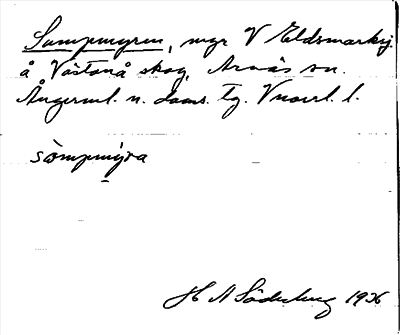 Sumpmyren, myr V Eldsmarksj.
å Västanå skog, Arnäs sn.
Ångerml. n. doms. tg. Vnorrl. l.
sòmpmýra
H N Söderberg 1936